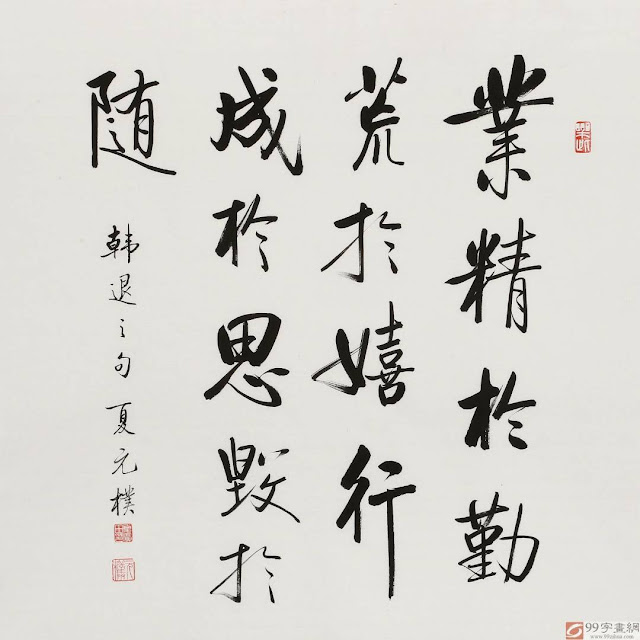 業精於勤
荒於嬉行
成於思毀於
随
韩退之句 夏元樸
99字畫網
www.99zihua.com